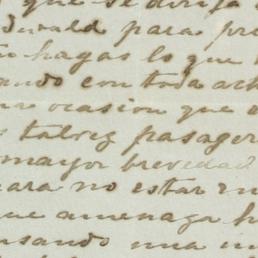 que se dirija
para pre
hagas lo que
ando con toda
ocasion que
talvez pasager
mayor brevedad
para no estar en
que amenaza h
usando una in